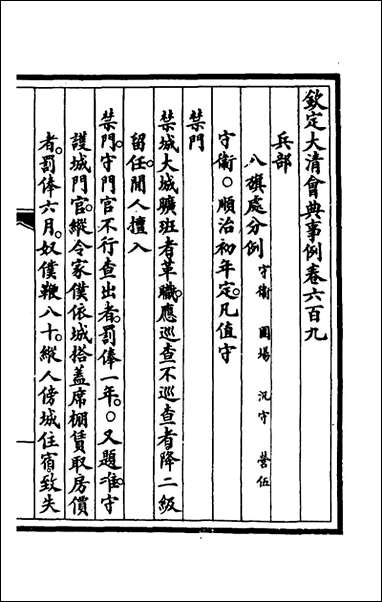 欽定大清會典事例卷六百九
兵部
八旗處分例 守衛 圍場 汛守 營伍
守衛○順治初年定凡值守
禁門
禁城大城曠班者革職應巡查不巡查者降二級
留任閒人擅入
禁門守門官不行查出者罰俸一年○又題准守
護城門官縱令家僕依城搭蓋席棚賃取房價
者罰俸六月奴僕鞭八十縱人傍城住宿致失